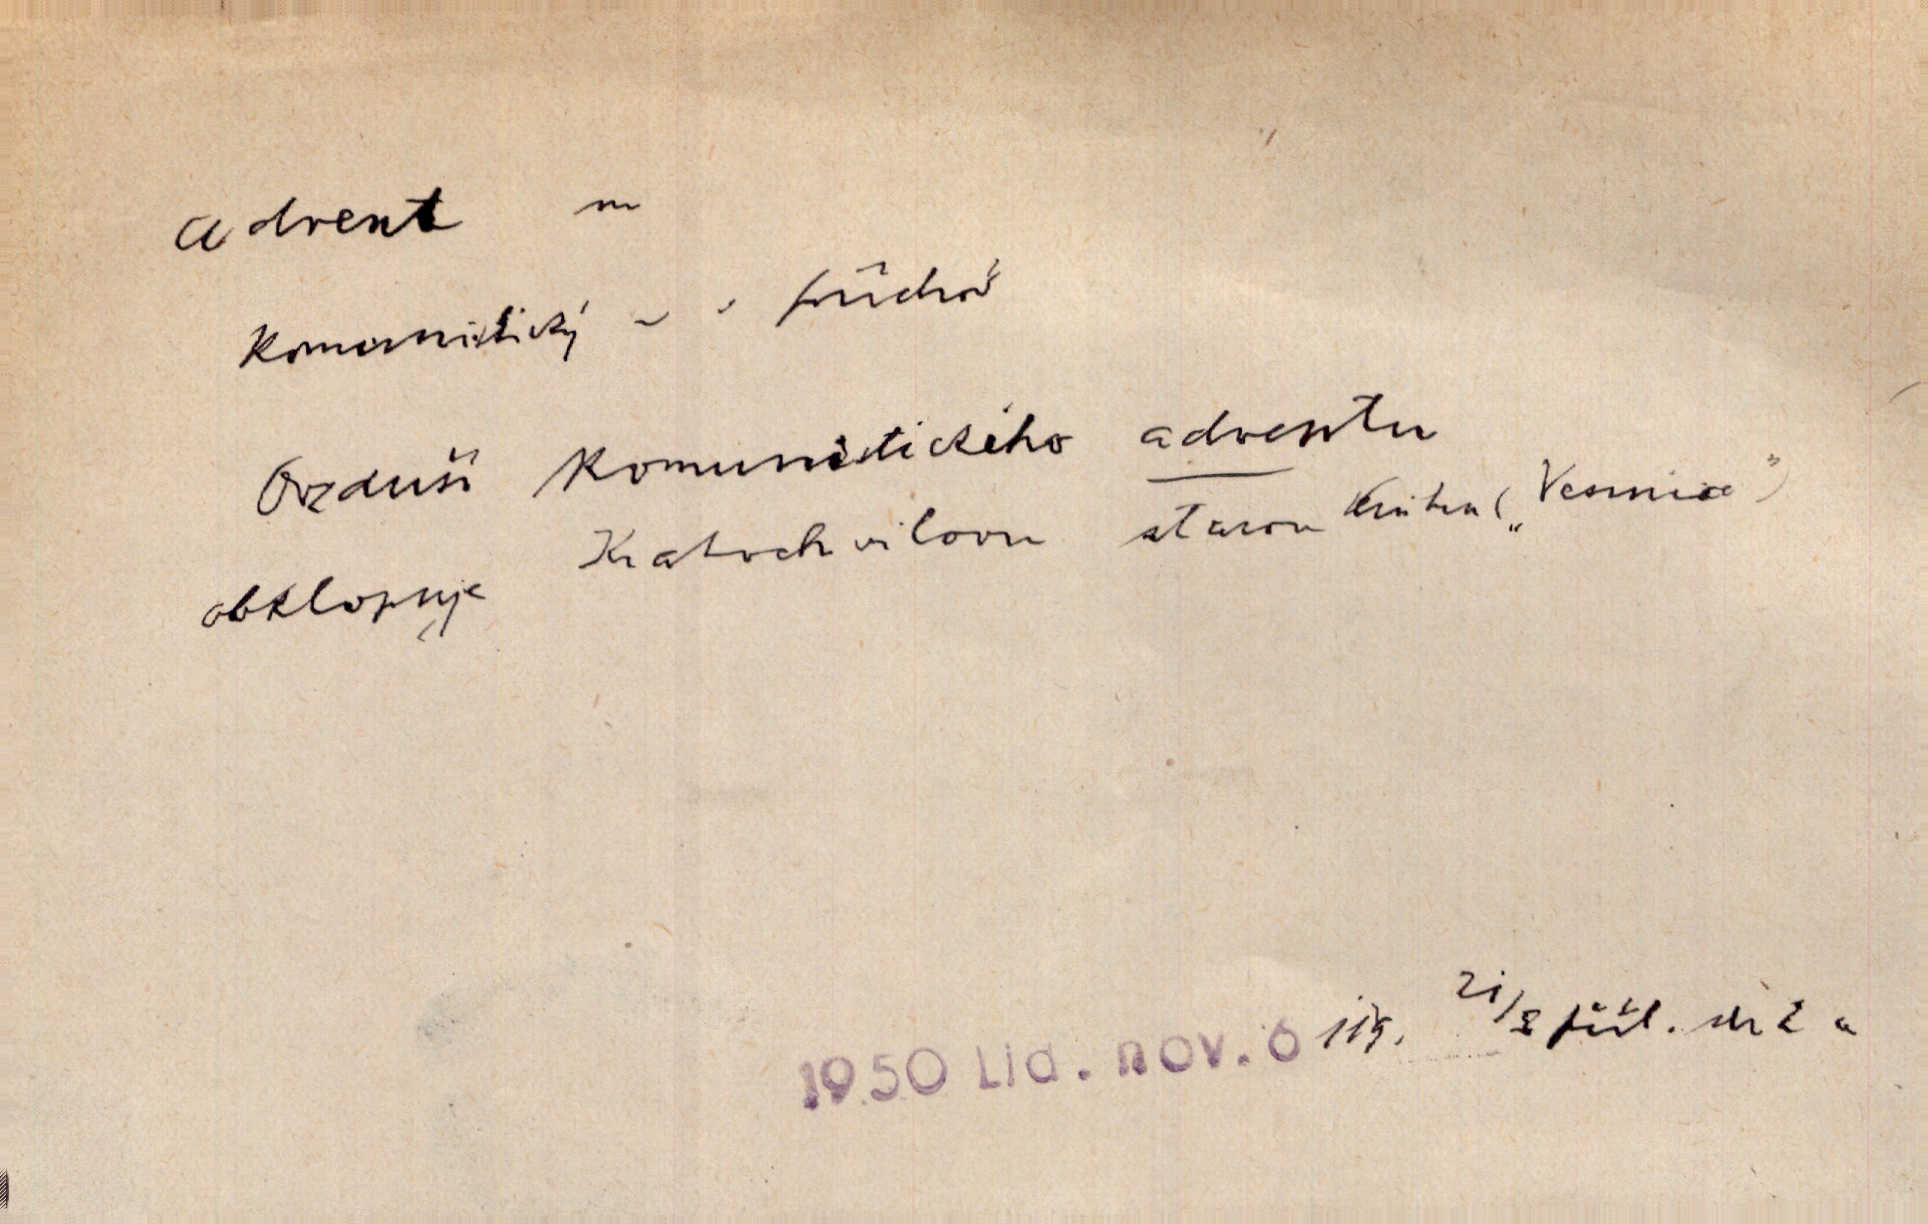 advent m
komunistický ~ : příchod
Ovzduší komunistického adventu
obklopuje Kratochvilovu starou knihu („Vesnice“)
1950 Lid. nov. 6 119. 21/5 příl. str 2 a